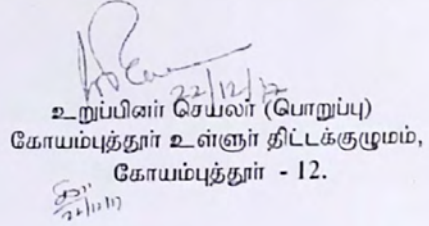 22/12/17
உறுப்பினர் செயலர் (பொறுப்பு)
கோயம்புத்தூர் உள்ளூர் திட்டக்குழுமம்,
கோயம்புத்தூர் - 12.
22/12/17